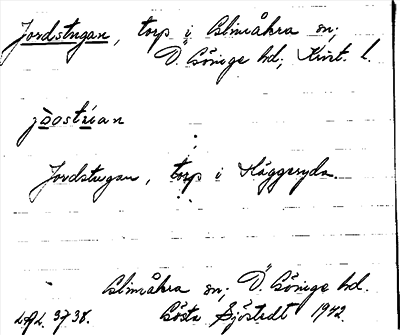 Jordstugan, torp i Glimåkra sn;
Ö. Göinge hd; Krist. l.
jòostu̇an
Jordstugan, torp i Häggeryda.
Glimåkra sn; Ö. Göinge hd.
Gösta Sjöstedt 1942.